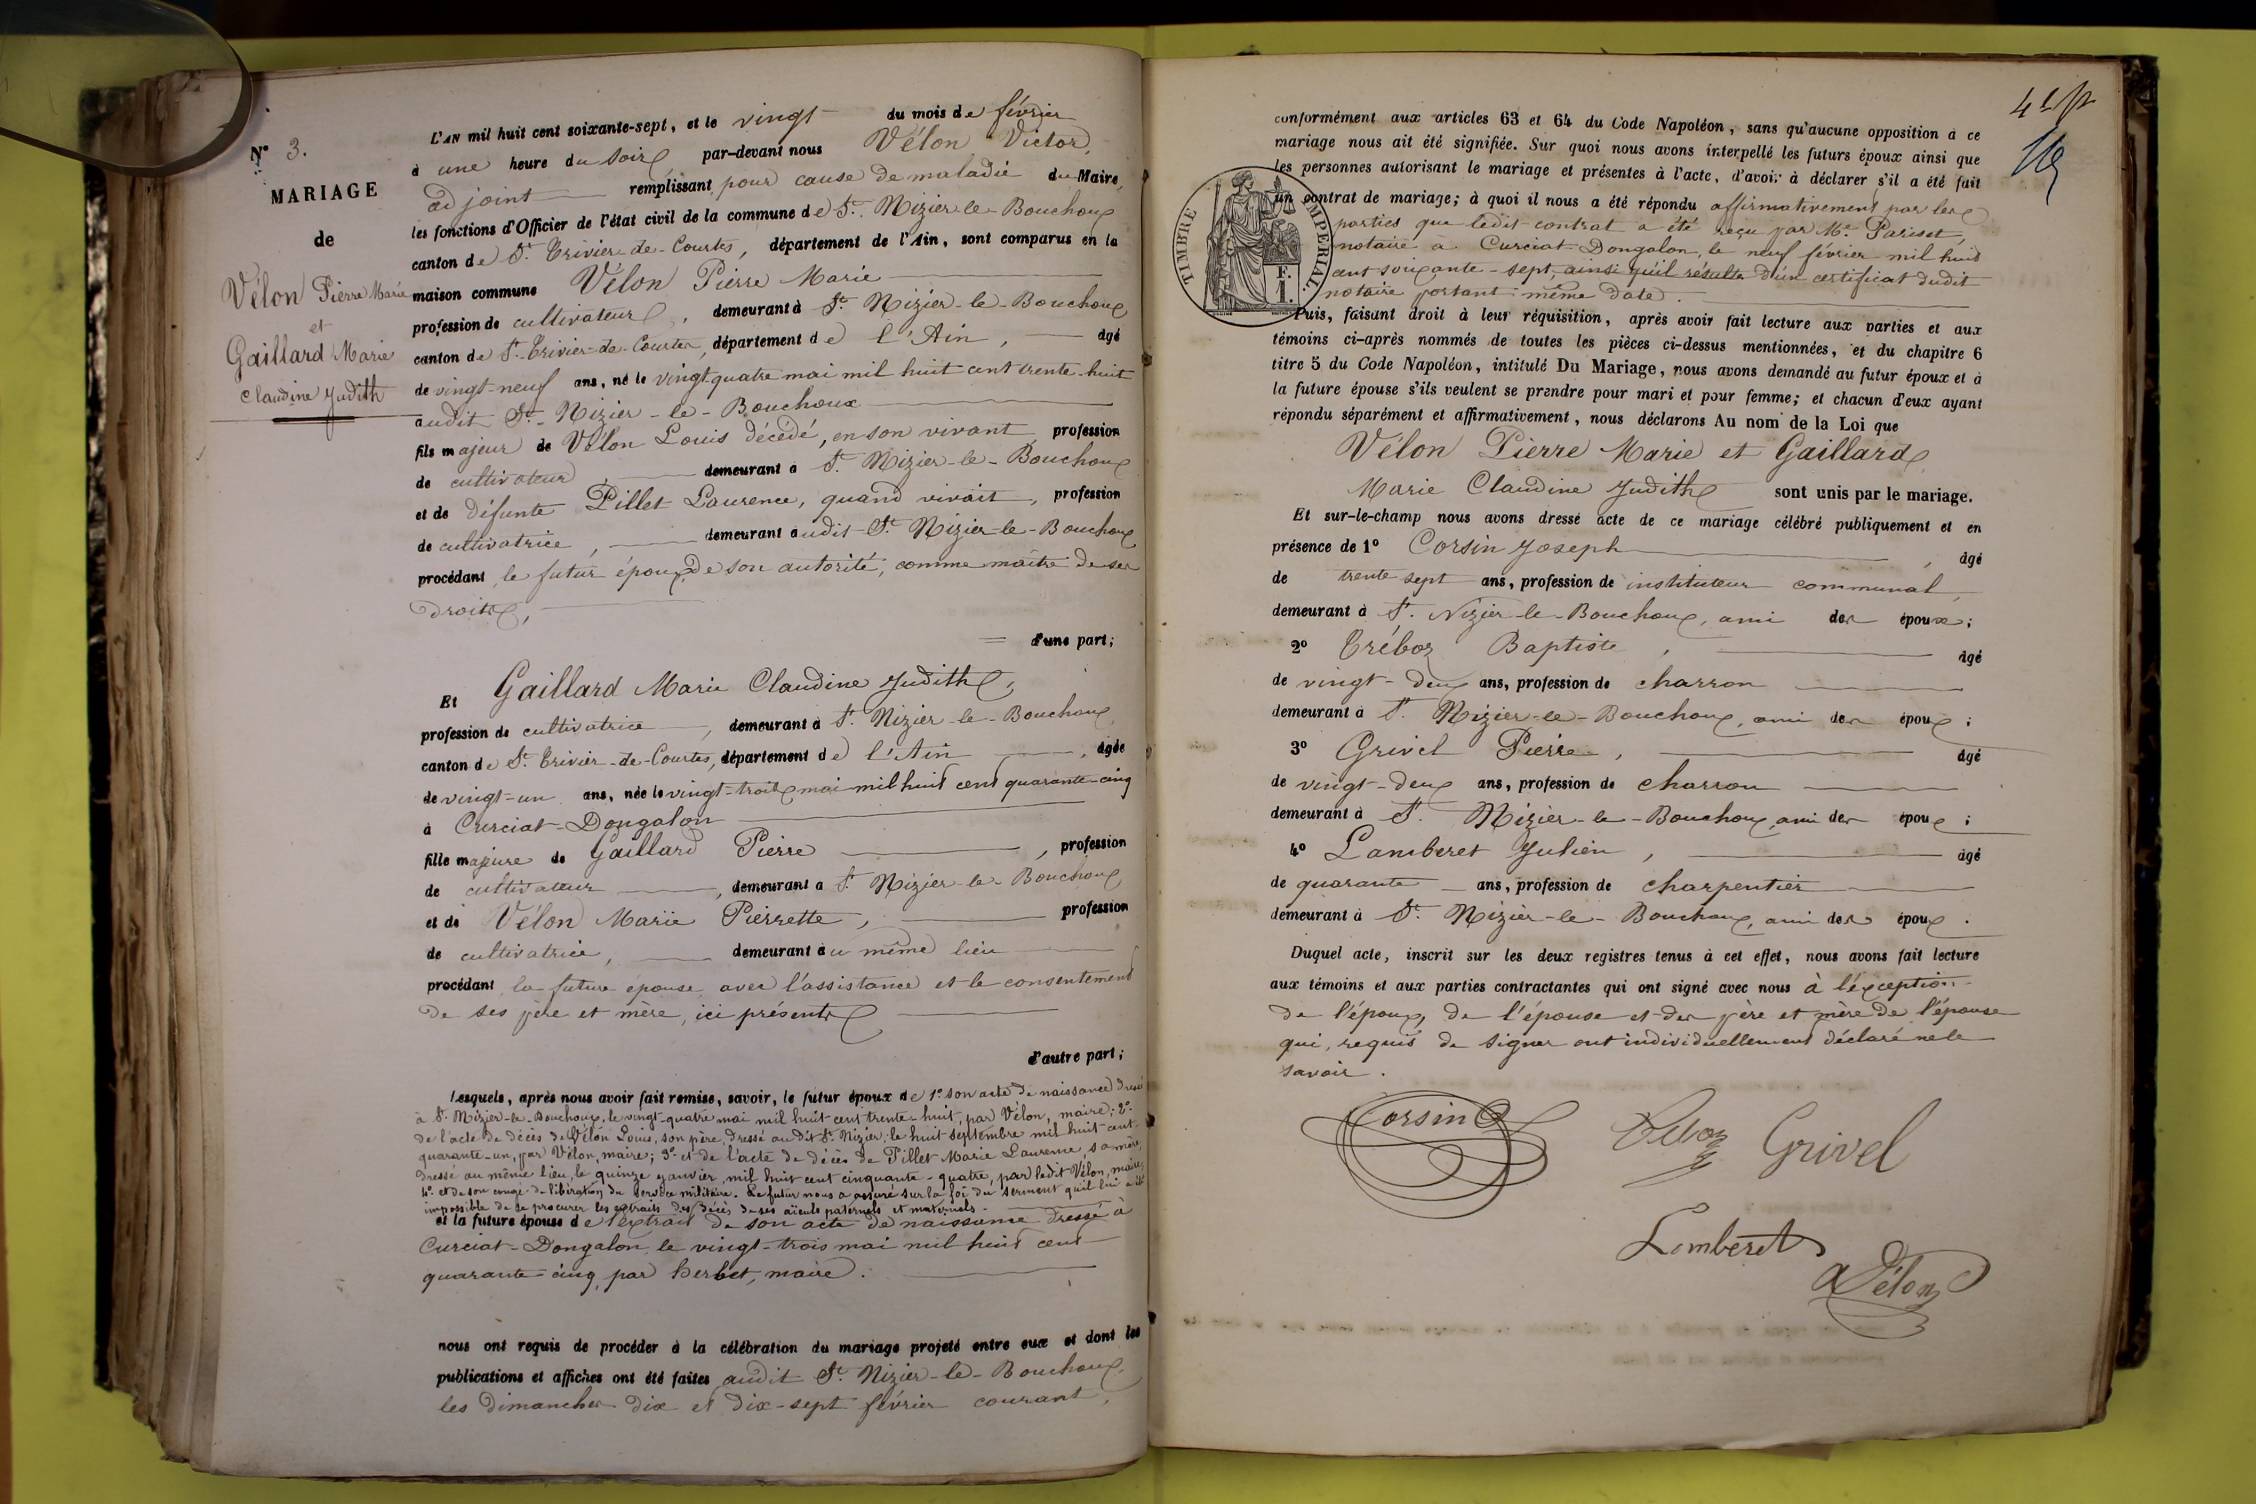 N° 3.
MARIAGE
de
Vélon Pierre Marie
et
Gaillard Marie
Claudine Judith
L'AN mil huit cent soixante-sept, et le vingt du mois de février
à une heure du soir par-devant nous Vélon Victor,
adjoint remplissant pour cause de maladie du Maire,
les fonctions d'Officier de l'état civil de la commune de St. Nizier-le-Bouchoux
canton de St. Trivier-de-Courtes, département de l'Ain, sont comparus en la
maison commune Vélon Pierre Marie
profession de cultivateur, demeurant à St. Nizier-le-Bouchoux
canton de St. Trivier-de-Courtes, département de l'Ain, âgé
de vingt-neuf ans, né le vingt quatre mai mil huit cent trente-huit
audit St. Nizier-le-Bouchoux
fils majeur de Vélon Louis décédé, en son vivant profession
de cultivateur, demeurant à St. Nizier-le-Bouchoux
et de défunte Pillet Laurence, quand vivait, profession
de cultivatrice, demeurant audit St. Nizier-le-Bouchoux
procédant le futur époux de son autorité, comme maître de ses
droits,
d'une part;
Et Gaillard Marie Claudine Judith,
profession de cultivatrice, demeurant à St. Nizier-le-Bouchoux
canton de St. Trivier-de-Courtes, département de l'Ain, âgée
de vingt-un ans, née le vingt-trois mai mil huit cent quarante-cinq
à Curciat-Dongalon
fille majeure de Gaillard Pierre, profession
de cultivateur, demeurant à St. Nizier-le-Bouchoux
et de Vélon Marie Pierrette, profession
de cultivatrice, demeurant au même lieu
procédant la future épouse avec l'assistance et le consentement
de ses père et mère, ici présents
d'autre part;
Lesquels, après nous avoir fait remise, savoir, le futur époux de 1° son acte de naissance dressé
à St. Nizier-le-Bouchoux, le vingt-quatre mai mil huit cent trente-huit, par Vélon, maire; 2°
de l'acte de décès de Vélon Louis, son père, dressé audit St. Nizier, le huit septembre mil huit cent
quarante-un, par Vélon, maire; 3° et de l'acte de décès de Pillet Marie Laurence, sa mère,
dressé au même lieu, le quinze janvier, mil huit cent cinquante-quatre, par ledit Vélon, maire;
4° et de son congé de libération du service militaire. Le futur nous a assuré sur la foi du serment qu'il lui a été
impossible de se procurer les extraits des décès de ses aïeuls paternels et maternels.
et la future épouse de l'extrait de son acte de naissance dressé à
Curciat-Dongalon, le vingt-trois mai mil huit cent
quarante-cinq, par Herbet, maire.
nous ont requis de procéder à la célébration du mariage projeté entre eux et dont les
publications et affiches ont été faites audit St. Nizier-le-Bouchoux
les dimanches dix et dix-sept février courant,
conformément aux articles 63 et 64 du Code Napoléon, sans qu'aucune opposition à ce
mariage nous ait été signifiée. Sur quoi nous avons interpellé les futurs époux ainsi que
les personnes autorisant le mariage et présentes à l'acte, d'avoir à déclarer s'il a été fait
un contrat de mariage; à quoi il nous a été répondu affirmativement par les
parties que ledit contrat a été reçu par Me. Pariset,
notaire à Curciat-Dongalon, le neuf février mil huit
cent soixante-sept, ainsi qu'il résulte d'un certificat dudit
notaire portant même date.
TIMBRE IMPERIAL.
F.
1.
Puis, faisant droit à leur réquisition, après avoir fait lecture aux parties et aux
témoins ci-après nommés de toutes les pièces ci-dessus mentionnées, et du chapitre 6
titre 5 du Code Napoléon, intitulé Du Mariage, nous avons demandé au futur époux et à
la future épouse s'ils veulent se prendre pour mari et pour femme; et chacun d'eux ayant
répondu séparément et affirmativement, nous déclarons Au nom de la Loi que
Vélon Pierre Marie et Gaillard
Marie Claudine Judith sont unis par le mariage.
Et sur-le-champ nous avons dressé acte de ce mariage célébré publiquement et en
présence de 1° Corsin Joseph, âgé
de trente sept ans, profession de instituteur communal,
demeurant à St. Nizier-le-Bouchoux, ami des époux;
2° Tréboz Baptiste, âgé
de vingt-deux ans, profession de charron
demeurant à St. Nizier-le-Bouchoux, ami des époux;
3° Grivel Pierre, âgé
de vingt-deux ans, profession de charron
demeurant à St. Nizier-le-Bouchoux, ami des époux;
4° Lamberet Julien, âgé
de quarante ans, profession de charpentier
demeurant à St. Nizier-le-Bouchoux, ami des époux.
Duquel acte, inscrit sur les deux registres tenus à cet effet, nous avons fait lecture
aux témoins et aux parties contractantes qui ont signé avec nous à l'exception
de l'époux, de l'épouse et des père et mère de l'épouse
qui, requis de signer ont individuellement déclaré ne le
savoir.
Corsin
Grivel
Lemberet
Vélon